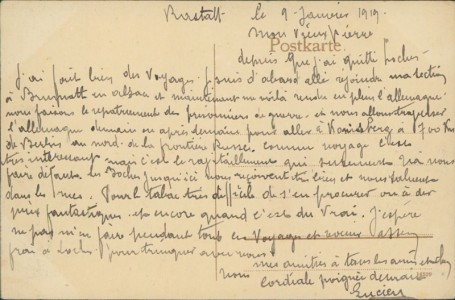 Rastatt le 9 Janvier 1919.
Mon Vieux Pierre
Postkarte
depuis que j'ai quitté Loches
j'ai fait bien des Voyages. Je suis d'abord allé rejoindre ma section
à en alsace et maintenant me voilà rendu en plein l'allemagne
nous faisons le rapatriement des prisonniers de guerre. et nous allons traverser
l'allemagne demain ou après demain pour aller à
de Berlin au nord de la frontière Russe. comme voyage c'est
très intéressant mais c'est le ravitaillement qui surement va nous
faire défaut. les Boches jusqu'ici nous reçoivent très bien et nous saluent
dans les rues. Pour le tabac très difficile de s'en procurer ou à des
prix fantastiques. et encore quand c'est du Vrai. J'espère
ne pas m'en faire pendant tout ce Voyage et
à Loches pour trinquer avec vous.
mes amitiés à tous les amis
vous cordiale poignée de main
Lucien